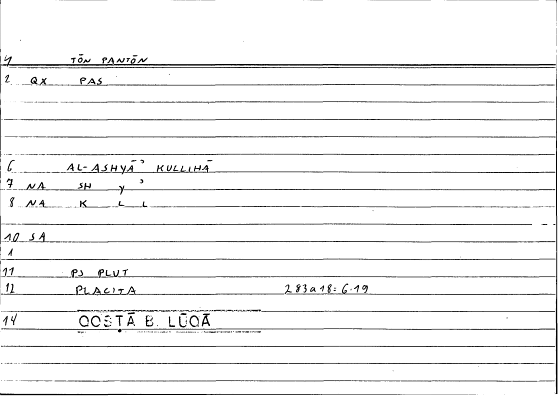 1 TŌN PANTŌN
2 QX PAS
6 AL-ASHYĀʾ KULLIHĀ
7 NA SH Y ʾ
8 NA K L L
10 SA
1
11 PS PLUT
12 PLACITA 283a18=6.19
14 QOSṬĀ B. LŪQĀ